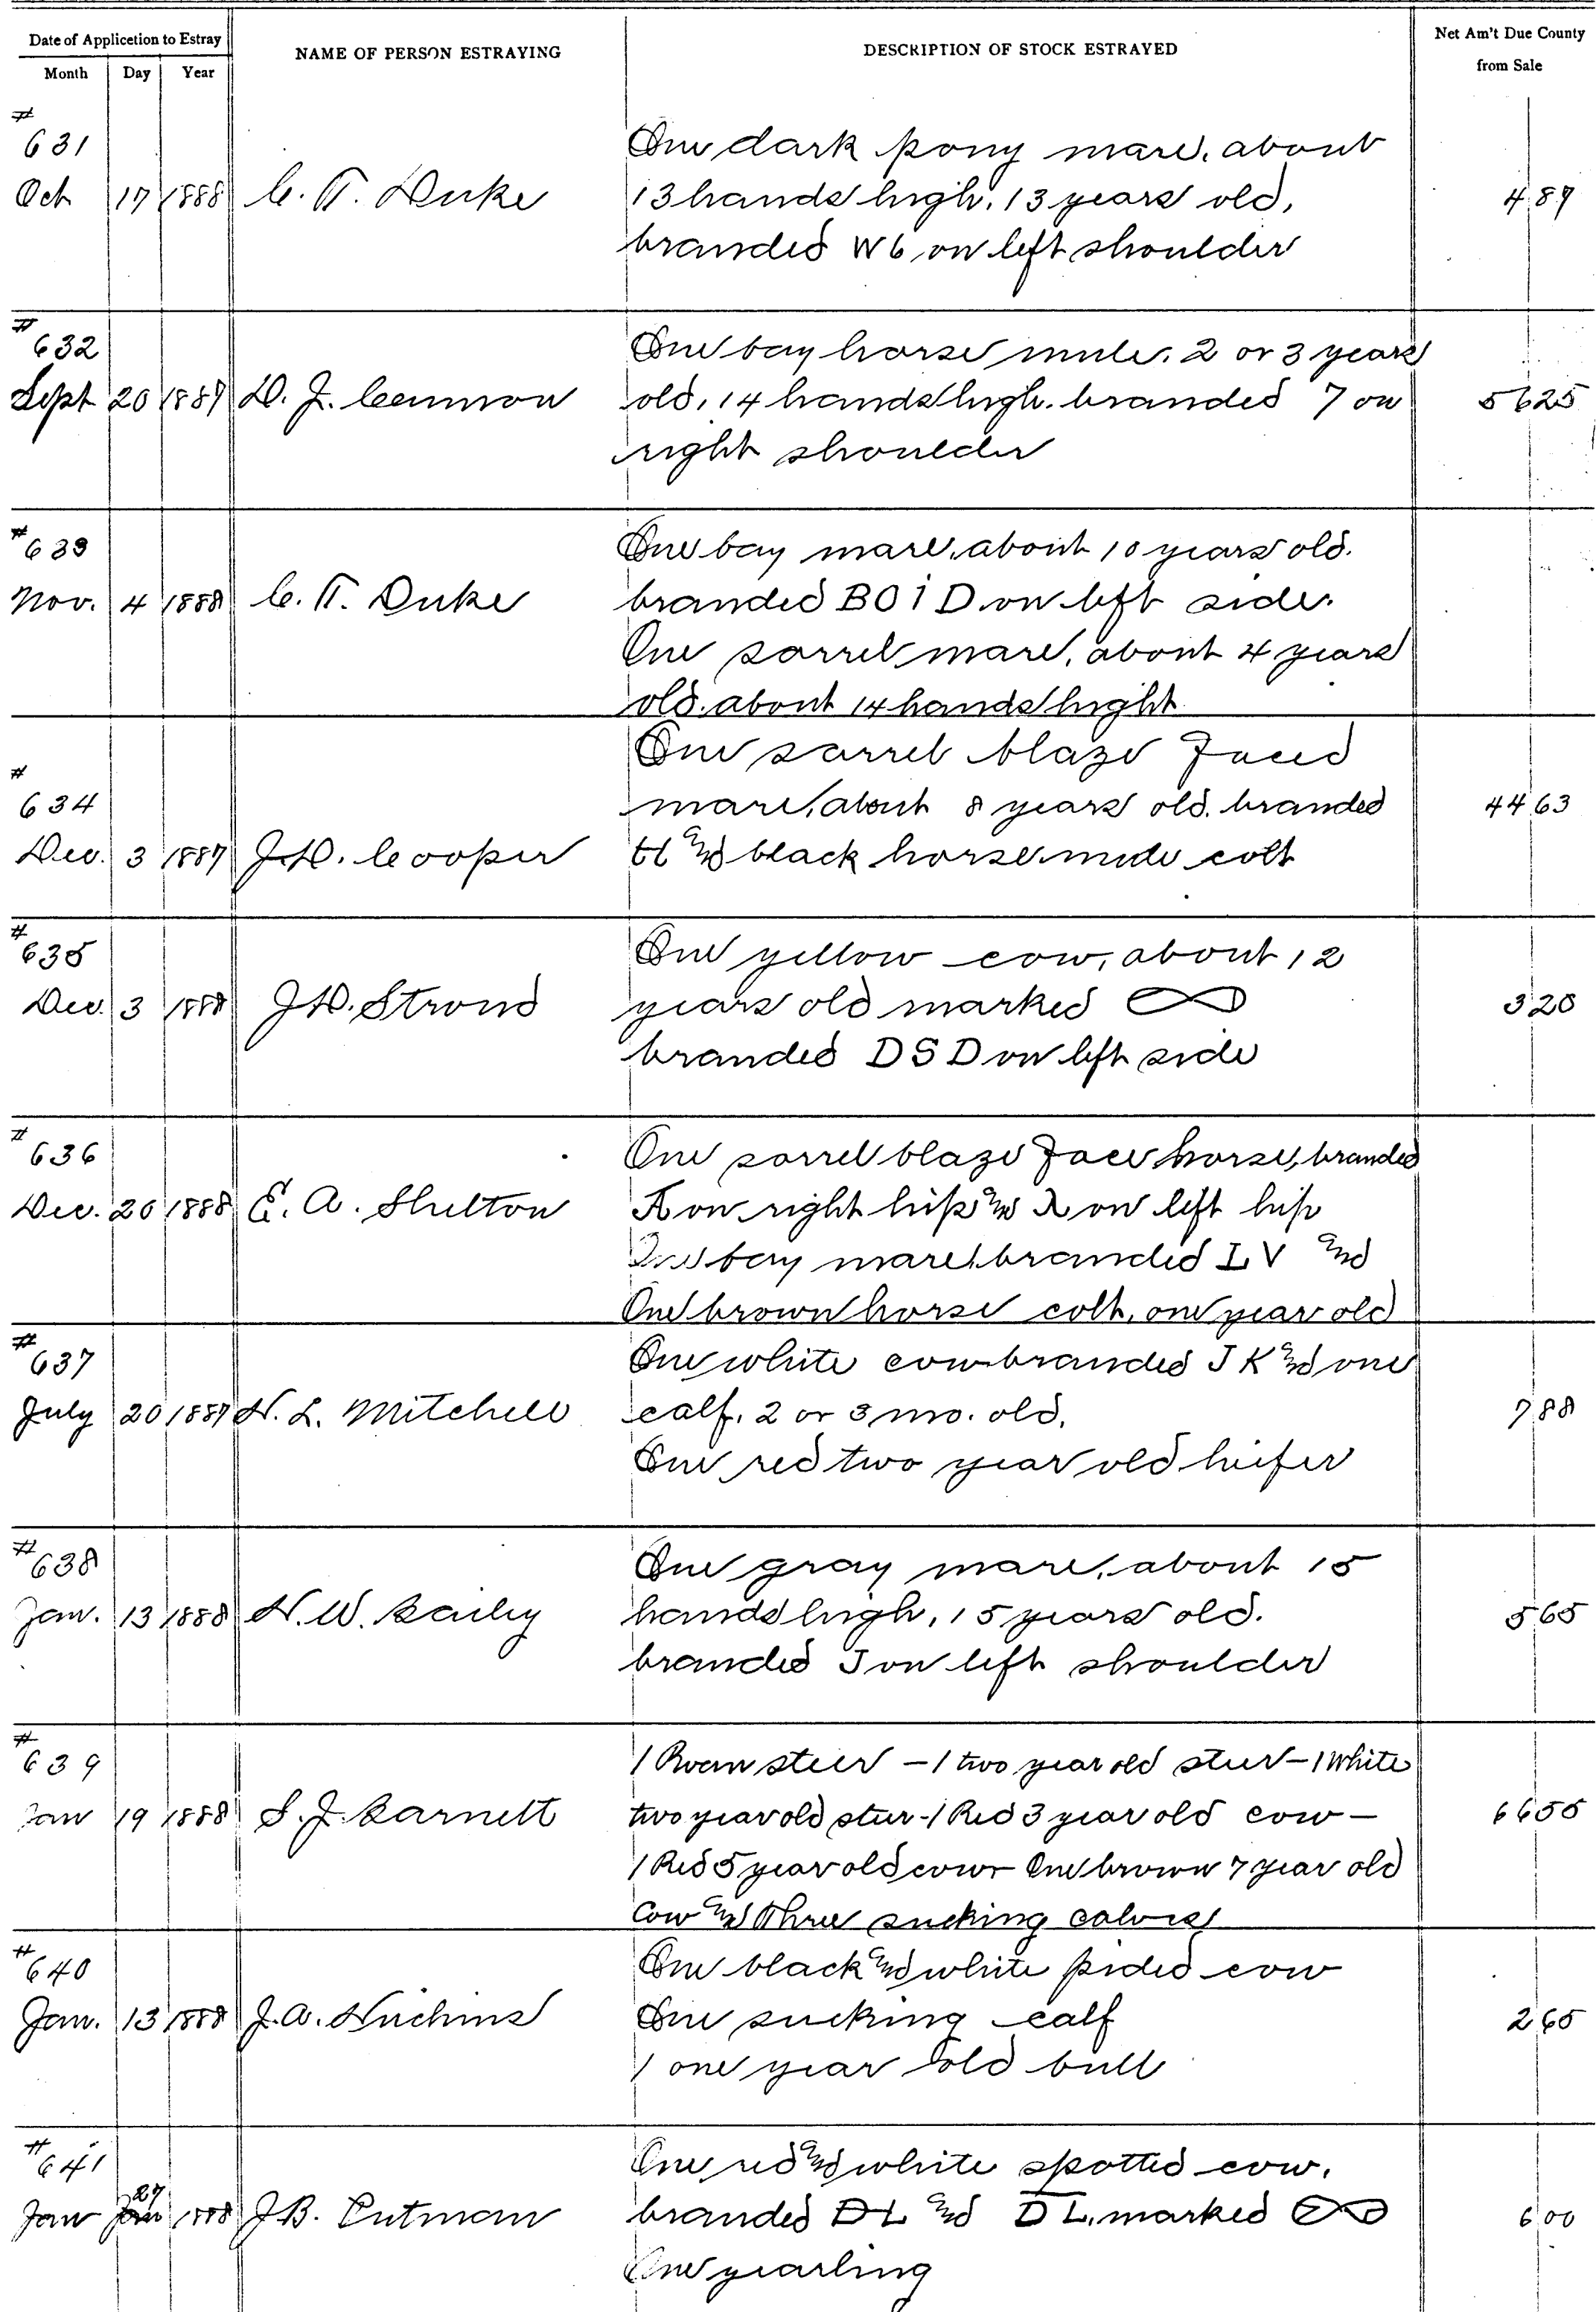 Date of Applicetion to Estray
NAME OF PERSON ESTRAYING
DESCRIPTION OF STOCK ESTRAYED
Net Am't Due County
from Sale
Month Day Year
#
631
Oct 17 1888 C. T. Duke
One dark pony mare, about
13 hands high, 13 years old,
branded W6 on left shoulder
4 87
#
632
Sept 20 1887 D. J. Cannon
One bay horse mule, 2 or 3 years
old, 14 hands high. branded 7 on
right shoulder
56 25
#
633
Nov. 4 1888 C. T. Duke
One bay mare, about 10 years old.
branded BO1D on left side.
One sorrel mare, about 4 years
old. about 14 hands hight
#
634
Dec. 3 1887 J.D. Cooper
One sorrel blaze faced
mare, about 8 years old. branded
H and black horse mule colt
44 63
#
635
Dec. 3 1888 J.D. Stroud
One yellow cow, about 12
years old marked
branded DSD on left side
3 20
#
636
Dec. 20 1888 E. A. Shelton
One sorrel blaze face horse, branded
on right hip and on left hip
One bay mare, branded LV and
One brown horse colt, one year old
#
637
July 20 1887 N. L. Mitchell
One white cow branded JK and one
calf, 2 or 3 mo. old,
One red two year old heifer
7 88
#
638
Jan. 13 1888 N. W. Baily
One gray mare, about 15
hands high, 15 years old.
branded J on left shoulder
5 65
#
639
Jan 19 1888 S. J. Barnett
1 Roan steer – 1 two year old steer – 1 White
two year old steer - 1 Red 3 year old cow –
1 Red 5 year old cow - One brown 7 year old
Cow and Three sucking calves
66 55
#
640
Jan. 13 1888 J. A.
One black and white pided cow
One sucking calf
1 one year old bull
2 65
#
641
Jan 27 1888 J B. Putman
One red and white spotted cow,
branded DL and DL. marked
One yearling
6 00